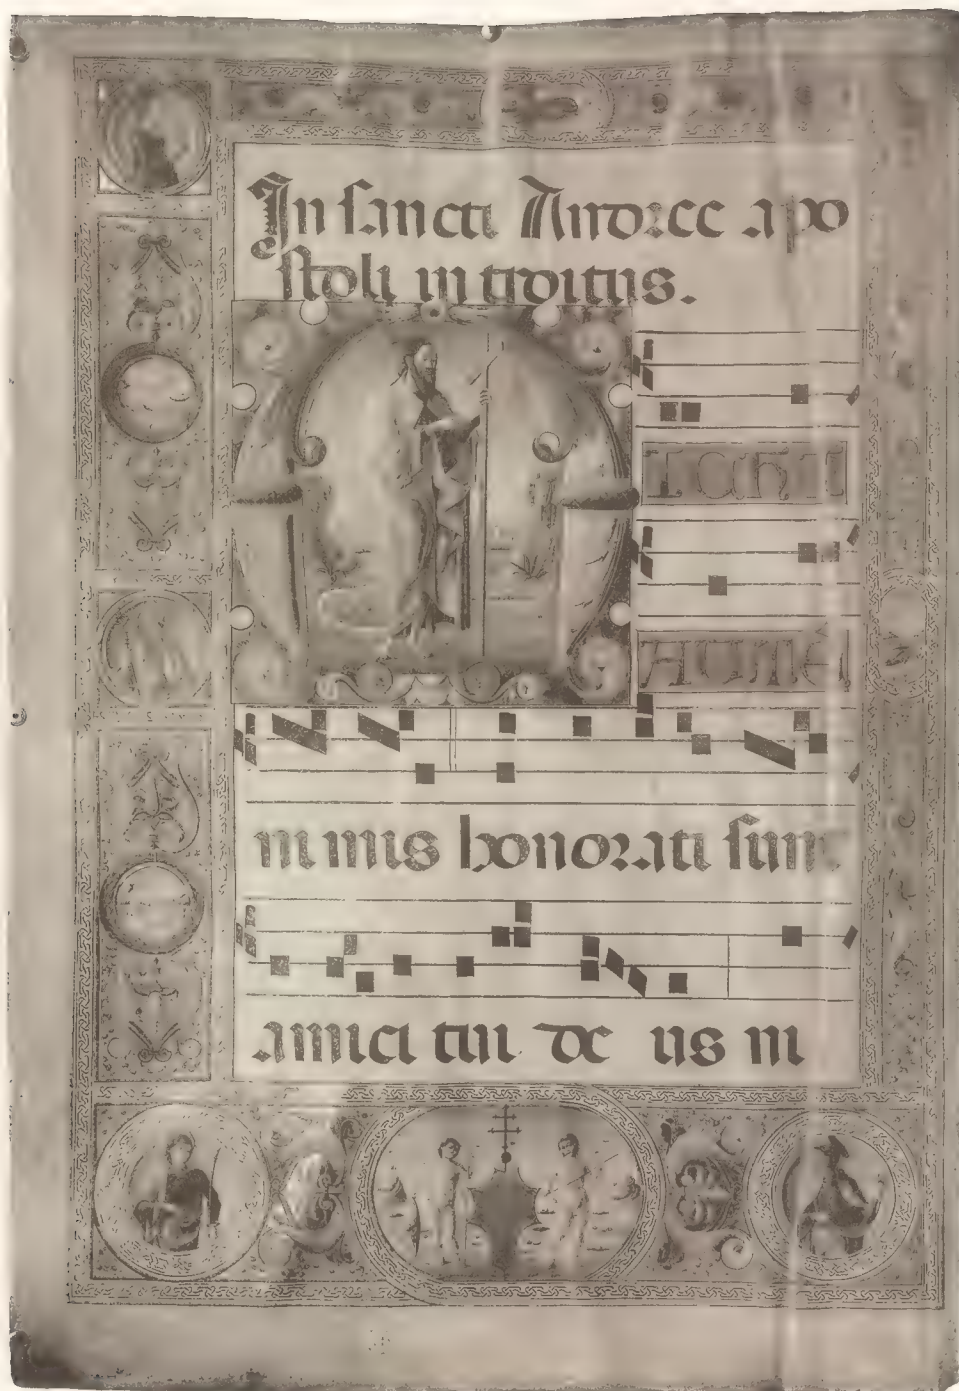 In sancti Andree apo
stoli introitus.
MICHI
AUTĒ
nimis honorati sunt
amici tui de us ni